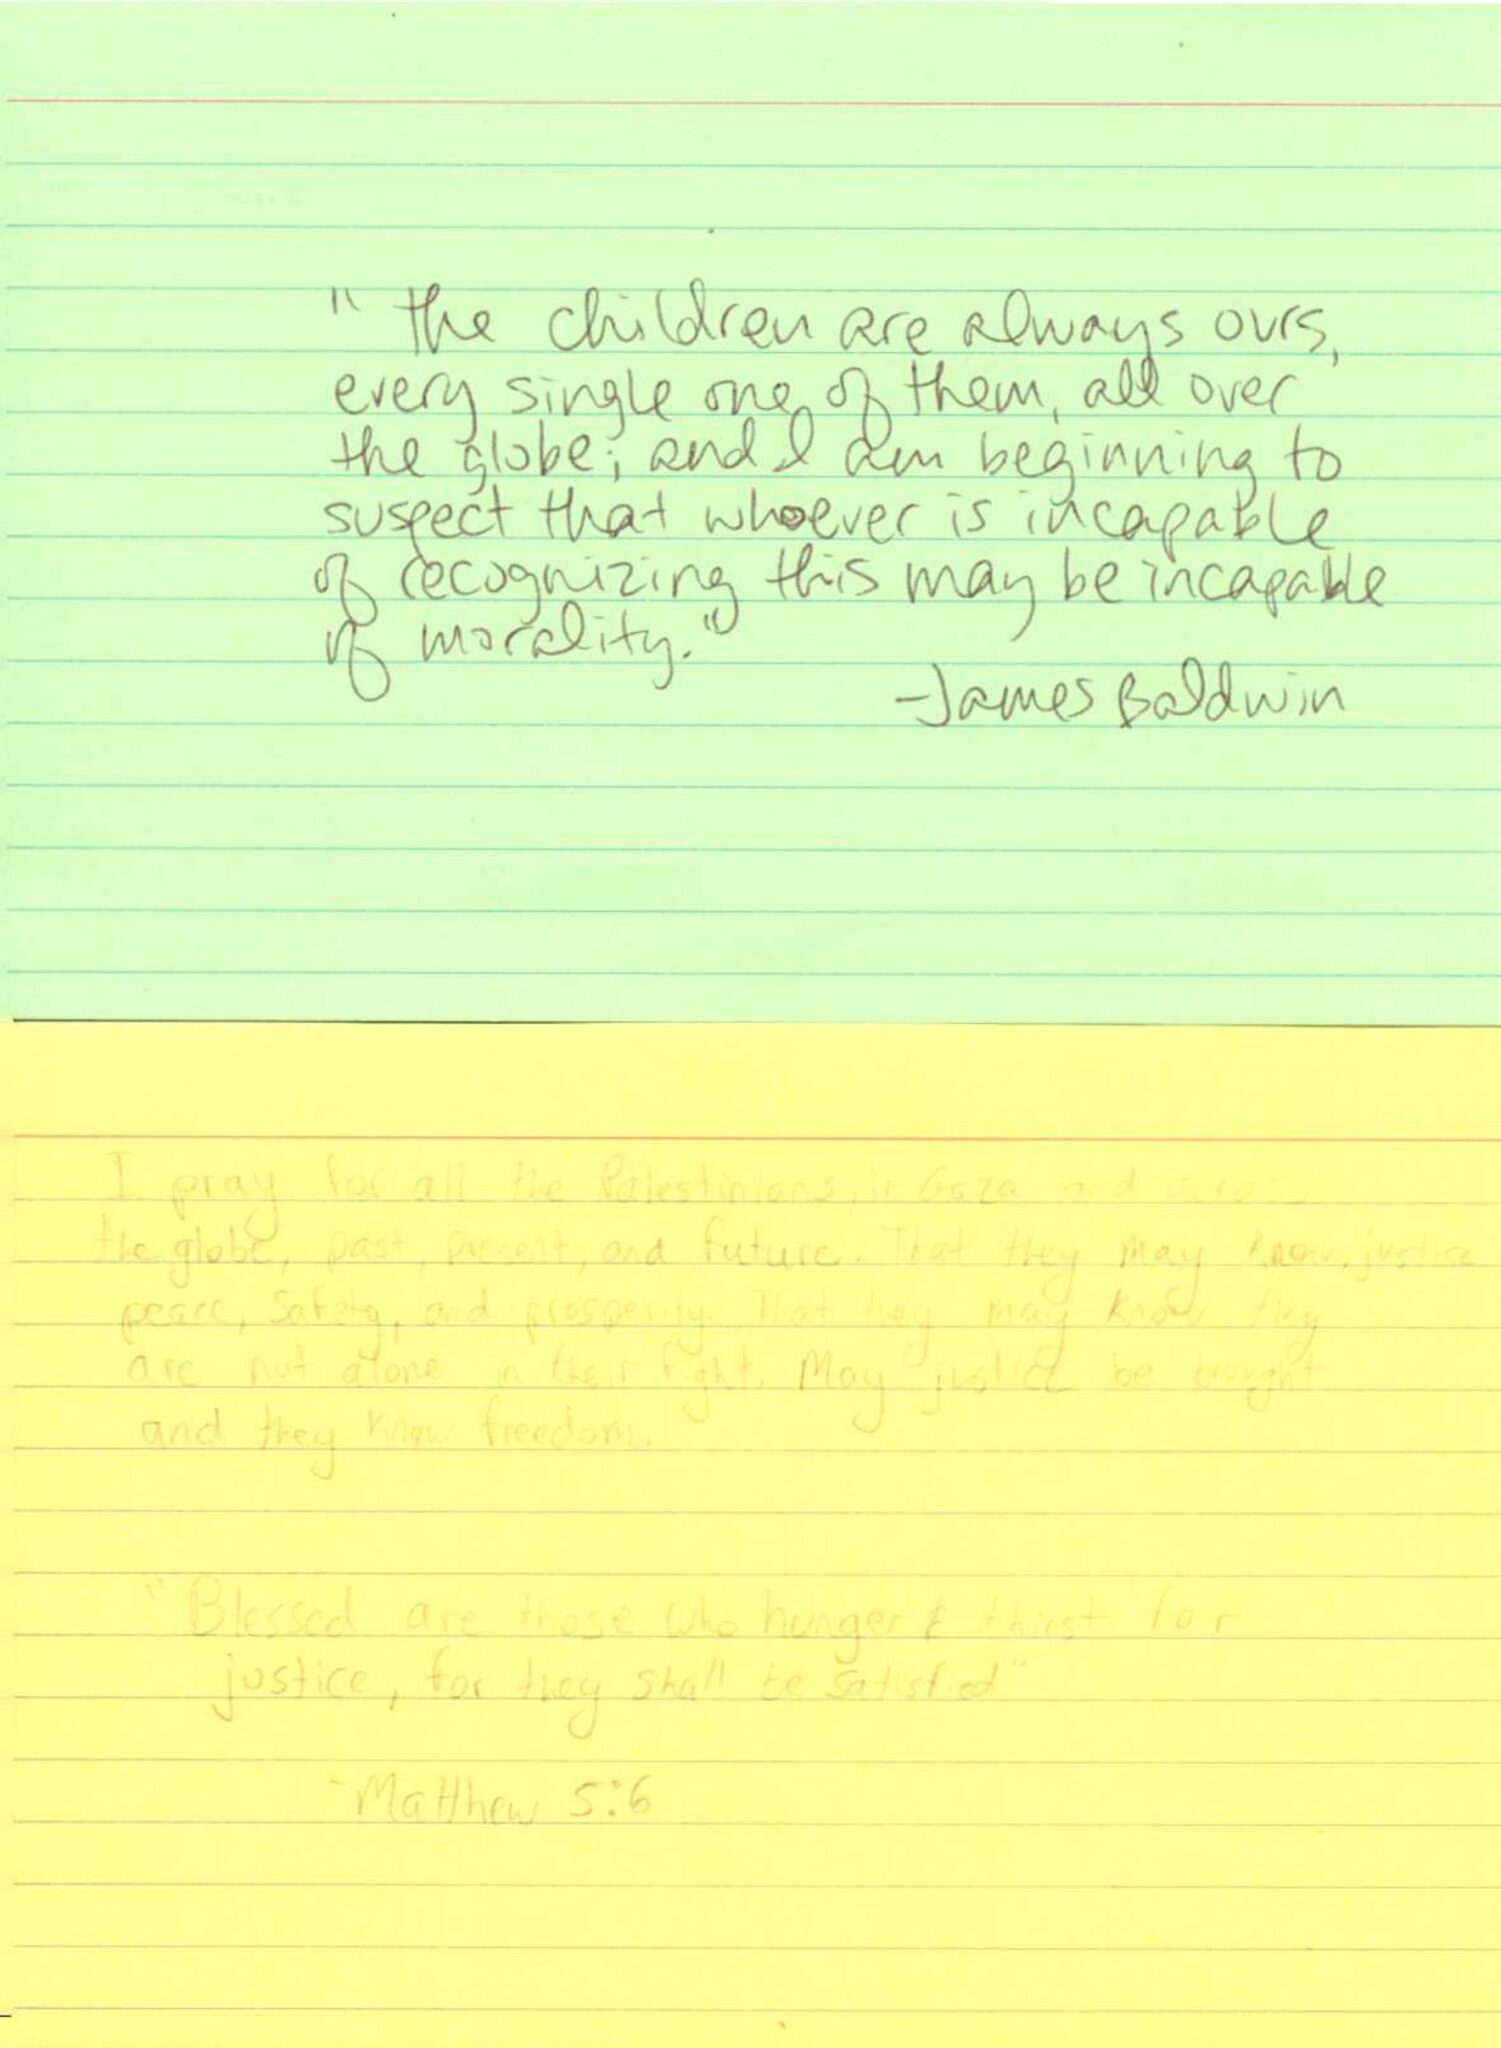 "The children are always ours,
every single one of them, all over
the globe; and I am beginning to
suspect that whoever is incapable
of recognizing this may be incapable
of morality."
-James Baldwin
I pray for all the Palestinians, in Gaza and across
the globe, past, present, and future. That they may know justice
peace, safety, and prosperity. That they may know they
are not alone in their fight. May justice be brought
and they know freedom.
"Blessed are those who hunger & thirst for
justice, for they shall be satisfied"
-Matthew 5:6